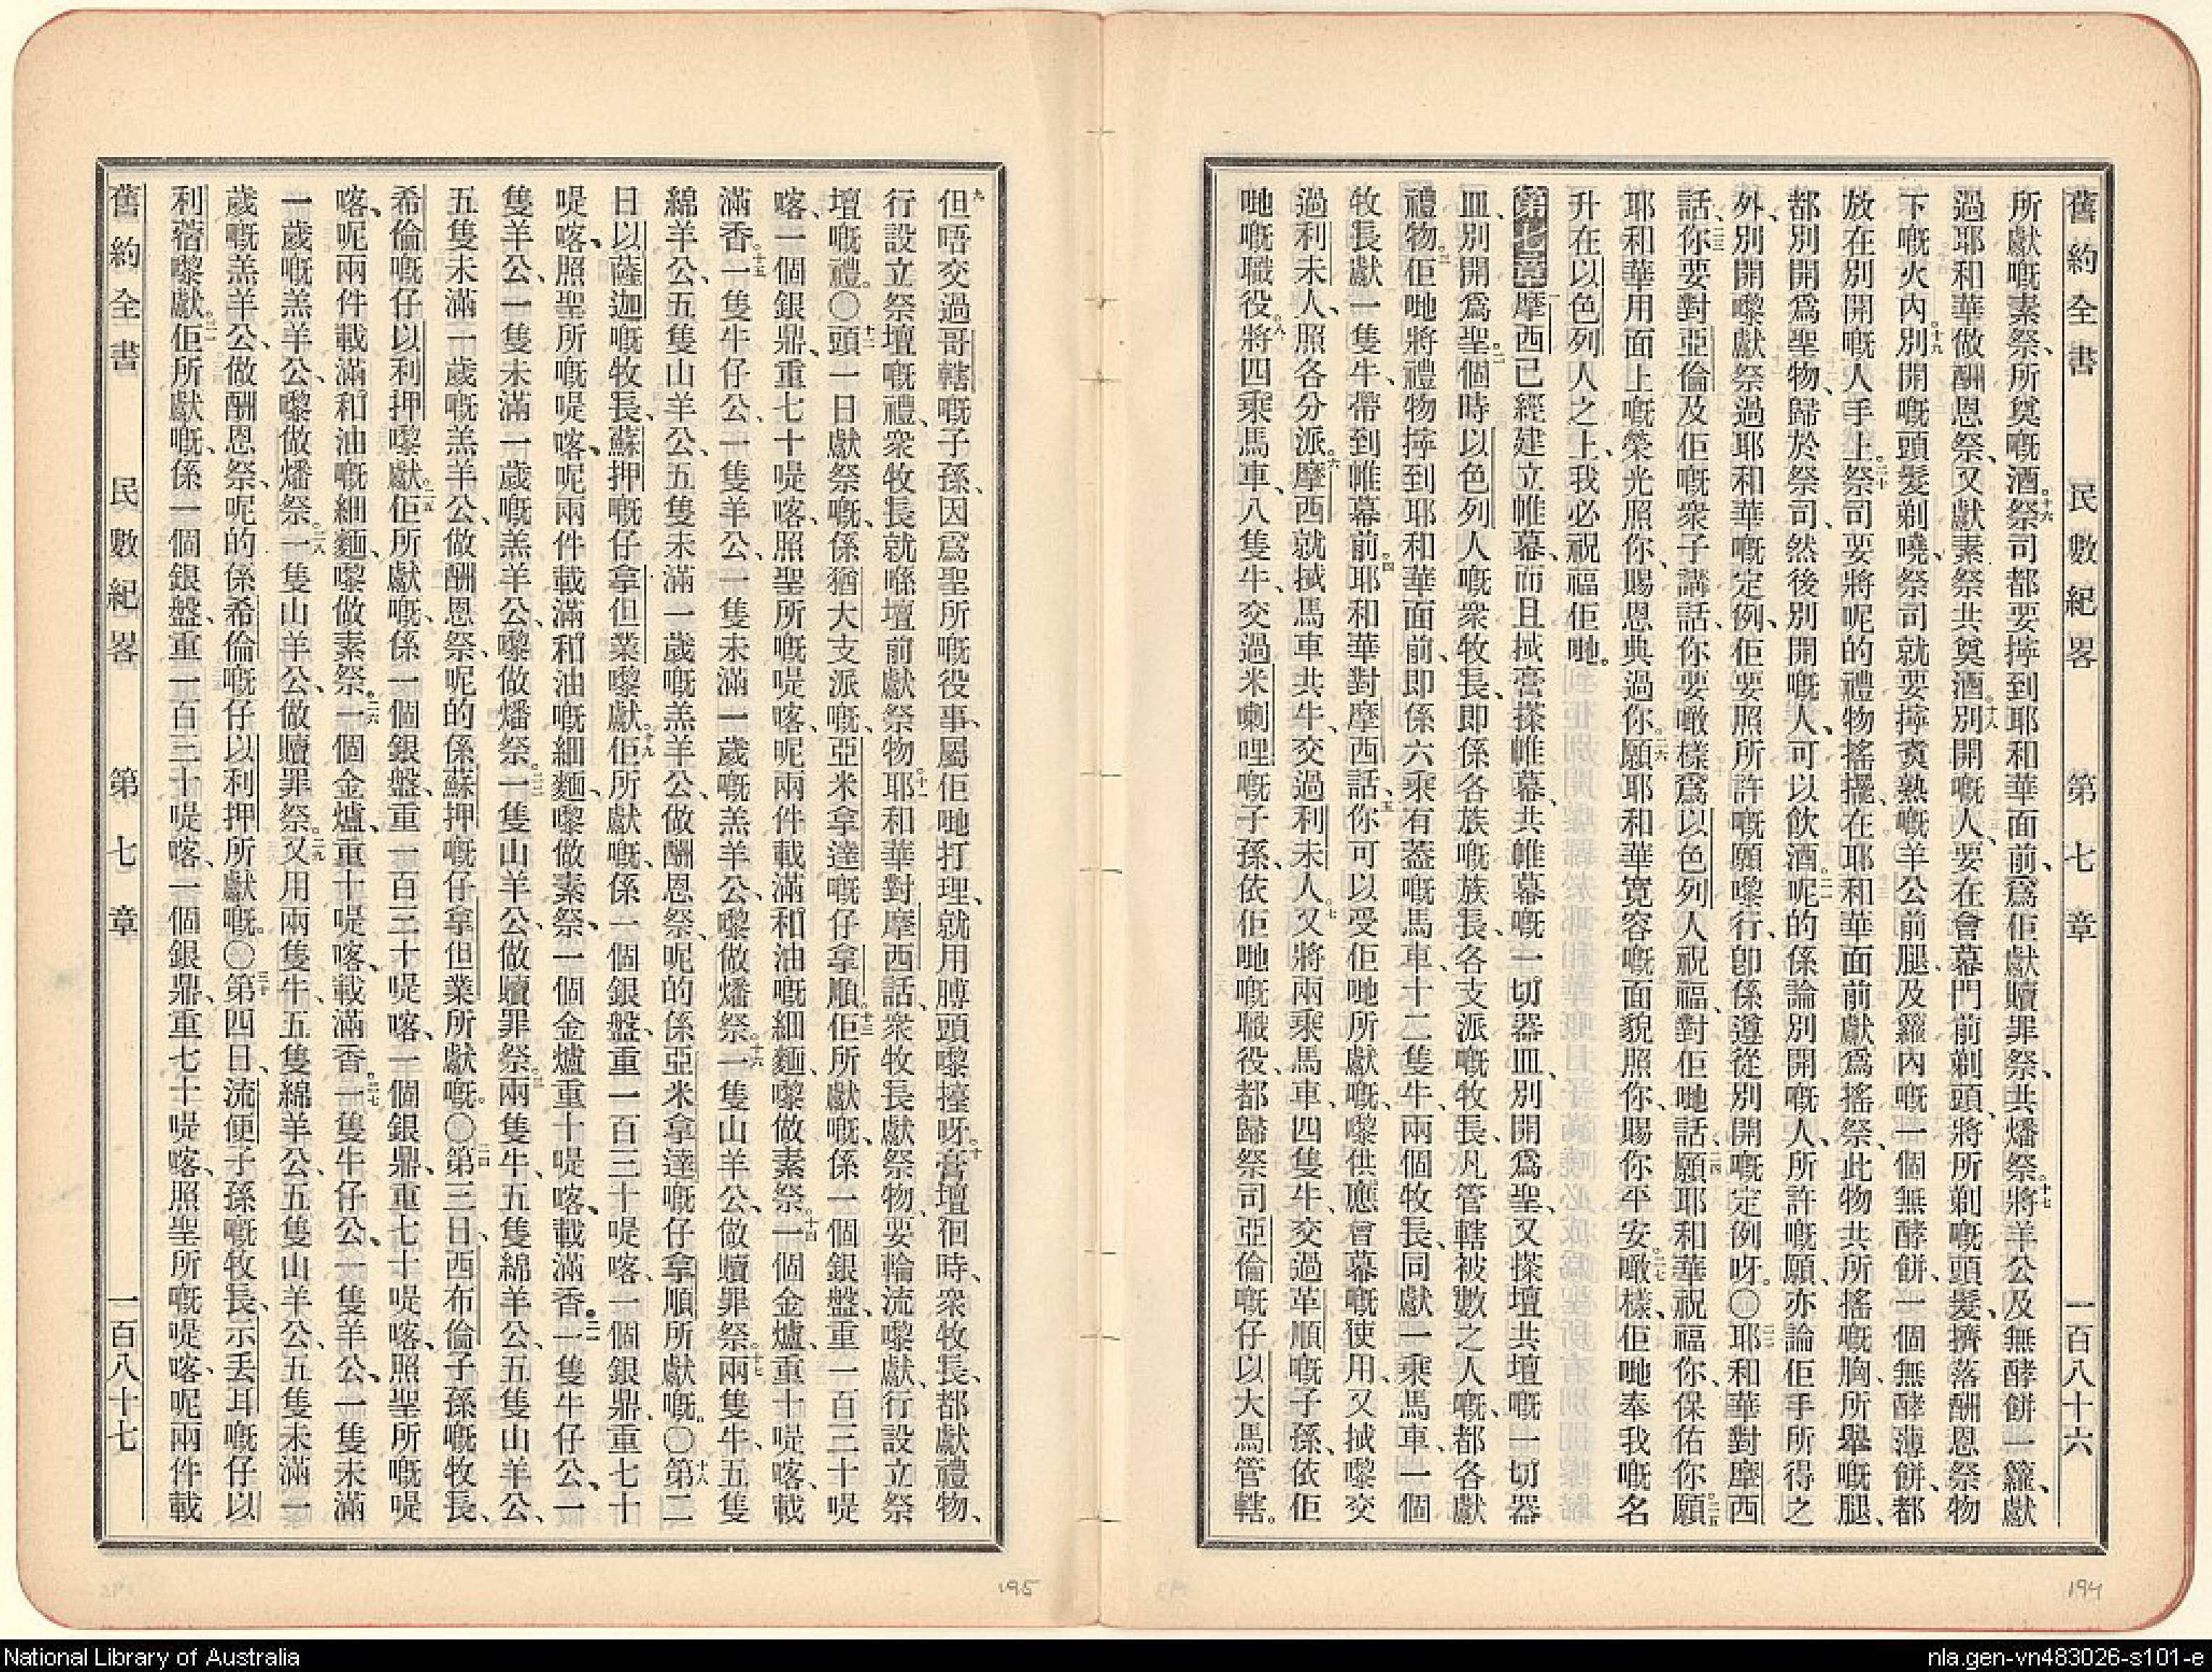 舊約全書 民數紀畧 第七章 一百八十六
所獻嘅素祭、所奠嘅酒祭。十六祭司都要擰到耶和華面前、爲佢獻贖罪祭、共燔祭。十七將羊公及無酵餅一籮、獻
過耶和華做酬恩祭、又獻素祭共奠酒。十八別開嘅人、要在會幕門前剃頭、將所剃嘅頭髮、擠落酬恩祭物
下嘅火內。十九別開嘅頭髮剃嘵、祭司就要擰煑熟嘅羊公前腿、及籮內嘅一個無酵餅、一個無酵薄餅、都
放在別開嘅人手上。二十祭司要將呢的禮物搖擺、在耶和華面前獻爲搖祭、此物共所搖嘅胸、所舉嘅腿、
都別開爲聖物、歸於祭司、然後別開嘅人、可以飲酒。二一呢的係論別開嘅人、所許嘅願、亦論佢手所得之
外、別開嚟獻祭過耶和華嘅定例、佢要照所許嘅願嚟行、卽係遵從別開嘅定例呀。〇二二耶和華對摩西
話、二三你要對亞倫及佢嘅衆子講話、你要噉樣爲以色列人祝福、對佢哋話、二四願耶和華祝福你、保佑你。二五願
耶和華用面上嘅榮光照你、賜恩典過你。二六願耶和華寬容嘅面貌照你、賜你平安。二七噉樣、佢哋奉我嘅名
升在以色列人之上、我必祝福佢哋。
第七章 一摩西已經建立帷幕、而且搣膏搽帷幕、共帷幕嘅一切器皿、別開爲聖、又搽壇共壇嘅一切器
皿、別開爲聖。二個時以色列人嘅衆牧長、卽係各族嘅族長、各支派嘅牧長、凡管轄被數之人嘅、都各獻
禮物。三佢哋將禮物擰到耶和華面前、卽係六乘有蓋嘅馬車、十二隻牛、兩個牧長、同獻一乘馬車、一個
牧長獻一隻牛、帶到帷幕前。四耶和華對摩西話、五你可以受佢哋所獻嘅、嚟供應會幕嘅使用、又搣嚟交
過利未人、照各分派。六摩西就搣馬車共牛、交過利未人。七又將兩乘馬車、四隻牛、交過革順嘅子孫、依佢
哋嘅職役。八將四乘馬車、八隻牛、交過米喇哩嘅子孫、依佢哋嘅職役、都歸祭司亞倫嘅仔以大馬管轄。
194
九但唔交過哥轄嘅子孫、因爲聖所嘅役事、屬佢哋打理、就用膊頭嚟擡呀。十膏壇徊時、衆牧長、都獻禮物、
行設立祭壇嘅禮、衆牧長就喺壇前獻祭物。十一耶和華對摩西話、衆牧長獻祭物、要輪流嚟獻、行設立祭
壇嘅禮。〇十二頭一日獻祭嘅、係猶大支派嘅、亞米拿達嘅仔拿順。十三佢所獻嘅、係一個銀盤、重一百三十㖷
喀、一個銀鼎、重七十㖷喀、照聖所嘅㖷喀、呢兩件載滿和油嘅細麵、嚟做素祭。十四一個金爐、重十㖷喀、載
滿香。十五一隻牛仔公、一隻羊公、一隻未滿一歲嘅羔羊公、嚟做燔祭。十六一隻山羊公、做贖罪祭。十七兩隻牛、五隻
綿羊公、五隻山羊公、五隻未滿一歲嘅羔羊公、做酬恩祭、呢的係亞米拿達嘅仔拿順所獻嘅。〇十八第二
日、以薩迦嘅牧長、蘇押嘅仔拿但業嚟獻。十九佢所獻嘅、係一個銀盤、重一百三十㖷喀、一個銀鼎、重七十
㖷喀、照聖所嘅㖷喀、呢兩件載滿和油嘅細麵、嚟做素祭、二十一個金爐重十㖷喀、載滿香。二一一隻牛仔公、一
隻羊公、一隻未滿一歲嘅羔羊公、嚟做燔祭。二二一隻山羊公、做贖罪祭。二三兩隻牛、五隻綿羊公、五隻山羊公、
五隻未滿一歲嘅羔羊公、做酬恩祭、呢的係蘇押嘅仔拿但業所獻嘅。〇二四第三日、西布倫子孫嘅牧長、
希倫嘅仔以利押嚟獻。二五佢所獻嘅、係一個銀盤、重一百三十㖷喀、一個銀鼎、重七十㖷喀、照聖所嘅㖷
喀、呢兩件載滿和油嘅細麵、嚟做素祭。二六一個金爐、重十㖷喀、載滿香。二七一隻牛仔公、一隻羊公、一隻未滿
一歲嘅羔羊公、嚟做燔祭。二八一隻山羊公、做贖罪祭。二九又用兩隻牛、五隻綿羊公、五隻山羊公、五隻未滿一
歲嘅羔羊公、做酬恩祭、呢的係希倫嘅仔以利押所獻嘅。〇三十第四日、流便子孫嘅牧長、示丢耳嘅仔以
利蓿嚟獻。三一佢所獻嘅、係一個銀盤、重一百三十㖷喀、一個銀鼎、重七十㖷喀、照聖所嘅㖷喀、呢兩件載
舊約全書 民數紀畧 第七章 一百八十七
195
National Library of Australia
nla.gen-vn483026-s101-e